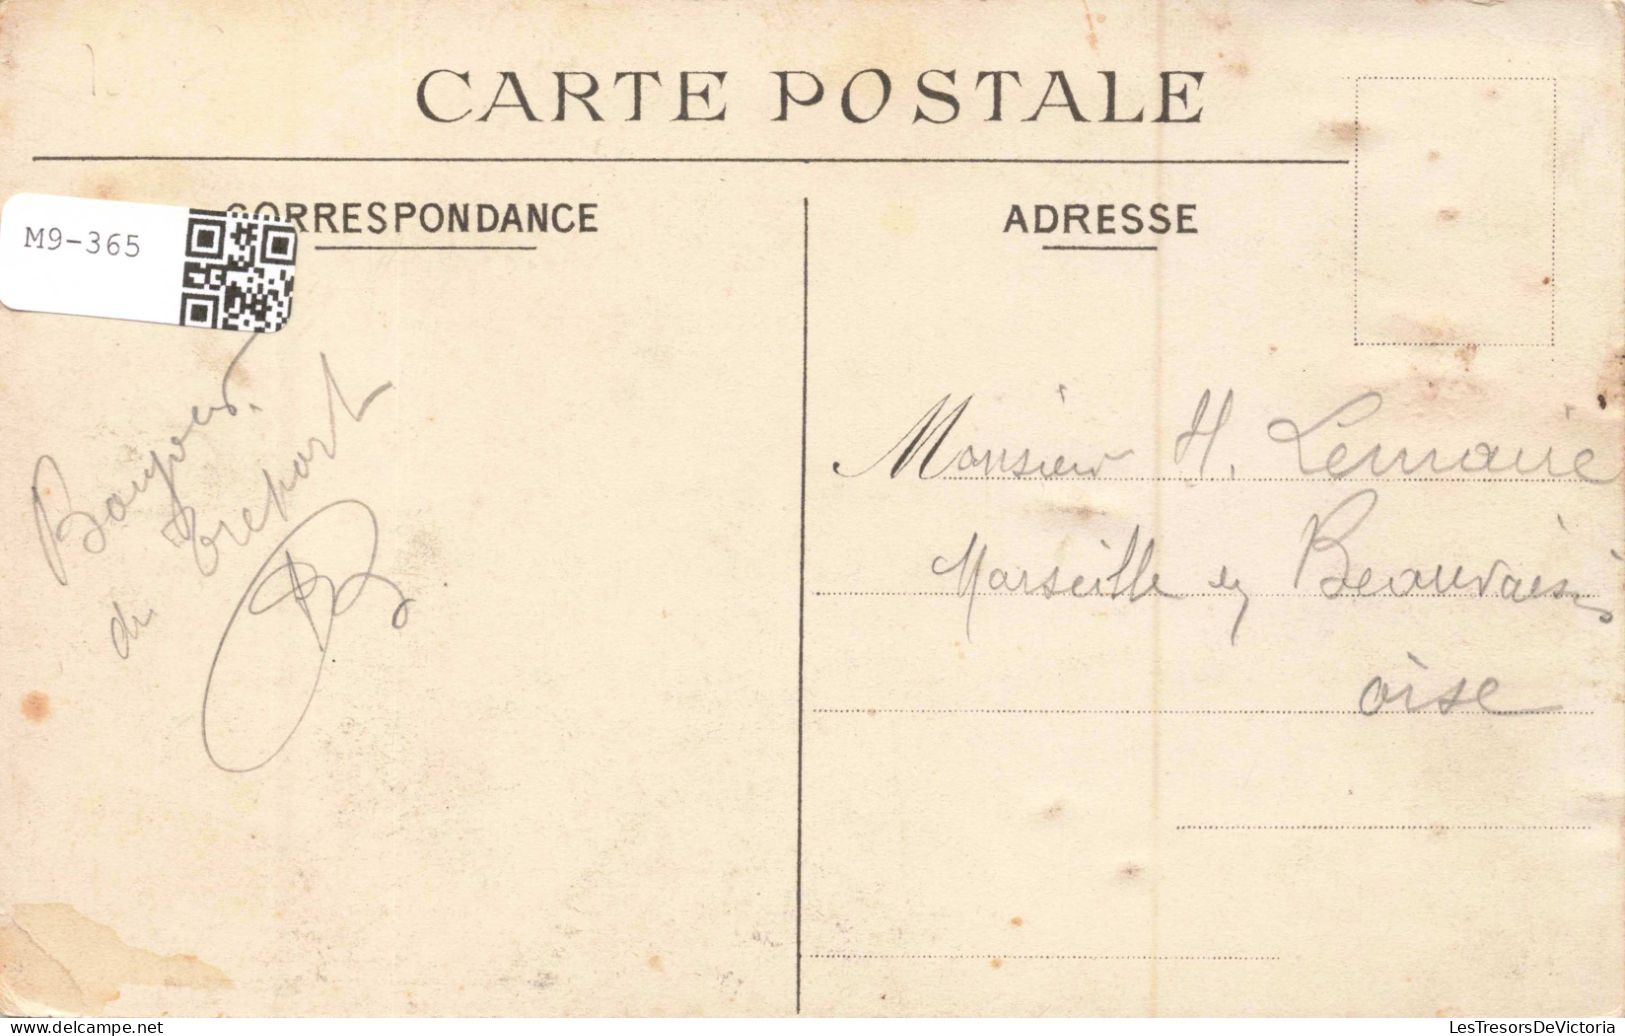 CARTE POSTALE
CORRESPONDANCE
ADRESSE
M9-365
Bonjour
du Tréport
Monsieur H. Lemaire
Marseille en Beauvaisis
oise
Delcampe.net
LesTresorsDeVictoria